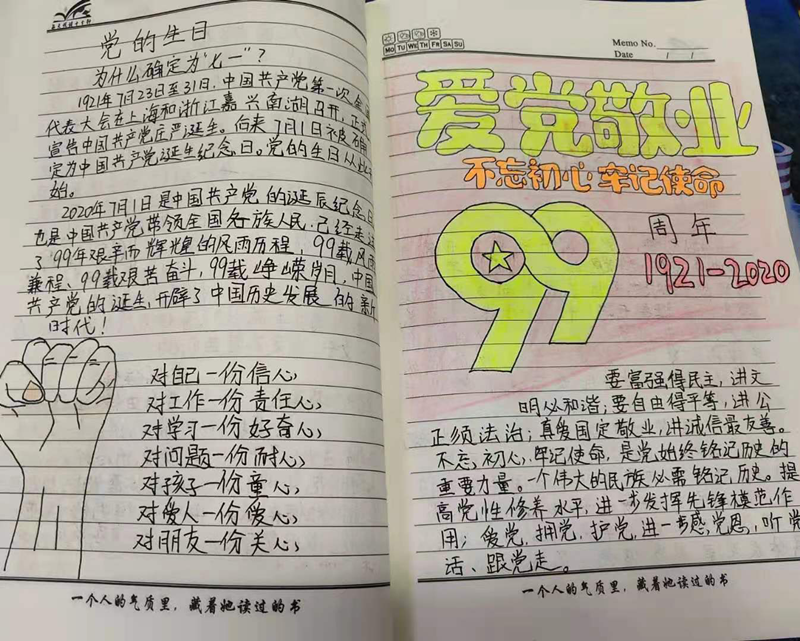 党的生日
为什么确定为“七一”？
1921年7月23日至31日，中国共产党第一次全国
代表大会在上海和浙江嘉兴南湖召开，正式
宣传中国共产党庄严诞生。后来7月1日被确
定为中国共产党诞生纪念日。党的生日从此
始。
2020年7月1日是中国共产党的诞辰纪念日
也是中国共产党带领全国各族人民，已经走过
了99年艰辛而辉煌的风雨历程，99载风雨
兼程、99载艰苦奋斗，99载峥嵘岁月，中国
共产党的诞生，开辟了中国历史发展的新
时代！
对自己一份信心，
对工作一份责任心，
对学习一份好奋心，
对问题一份耐心，
对孩子一份童心，
对爱人一份爱心，
对朋友一份关心，
一个人的气质里，藏着她读过的书
MO TU WE TH FR SA SU
Memo No.
Date / /
爱党敬业
不忘初心 牢记使命
99
周年
1921-2020
要富强得民主，讲文
明必和谐；要自由得平等，讲公
正须法治；真爱国定敬业，讲诚信最友善。
不忘初心、牢记使命，是党始终铭记历史的
重要力量。一个伟大的民族必需铭记历史。提
高党性修养水平，进一步发挥先锋模范作
用；爱党，拥党，护党，进一步感党恩，听党
话、跟党走。
一个人的气质里，藏着她读过的书